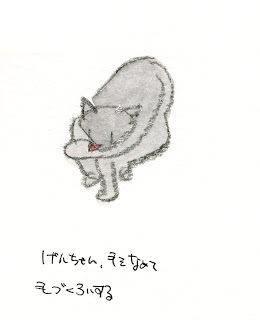 げんちゃん、手をなめて
毛づくろいする